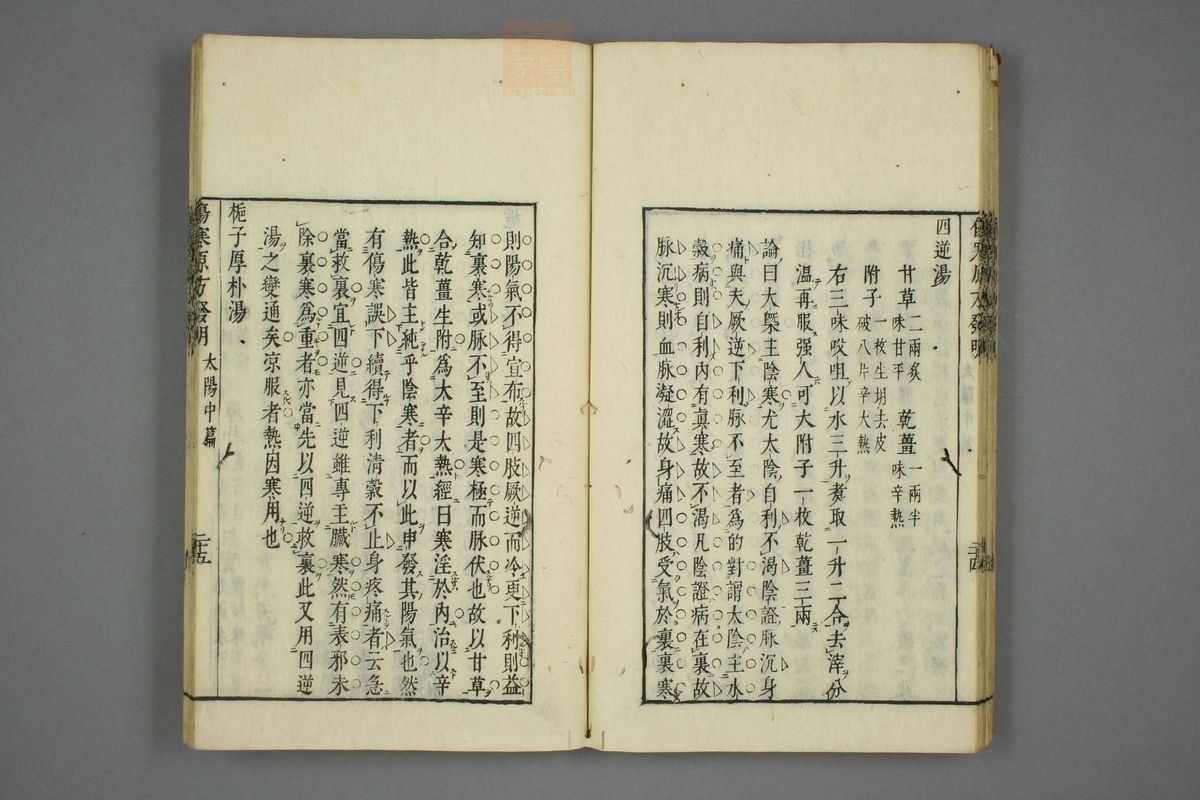 四逆湯
甘草 二兩炙味甘平 乾薑 一兩半味辛熱
附子 一枚生用去皮破八片辛大熱
右三味㕮咀以水三升煮取一升二合去滓分
温再服强人可大附子一枚乾薑三兩
論曰大槩主陰寒尤太陰自利不渴陰證脉沉身
痛與夫厥逆下利脉不至者爲的對謂太陰主水
穀病則自利内有眞寒故不渴凡陰證病在裏故
脉沉寒則血脉凝澀故身痛四肢受氣於裏裏寒
則陽氣不得宣布故四肢厥逆而冷更下利則益
知裏寒或脉不至則是寒極而脉伏也故以甘草
合乾薑生附爲大辛大熱經曰寒淫於內治以辛
熱此皆主純乎陰寒者而以此申發其陽氣也然
有傷寒誤下續得下利清穀不止身疼痛者云急
當救裏宜四逆見四逆雖專主臟寒然有表邪未
除裏寒爲重者亦當先以四逆救裏此又用四逆
湯之變通矣凉服者熱因寒用也
梔子厚朴湯
傷寒原方發明 太陽中篇 二十五